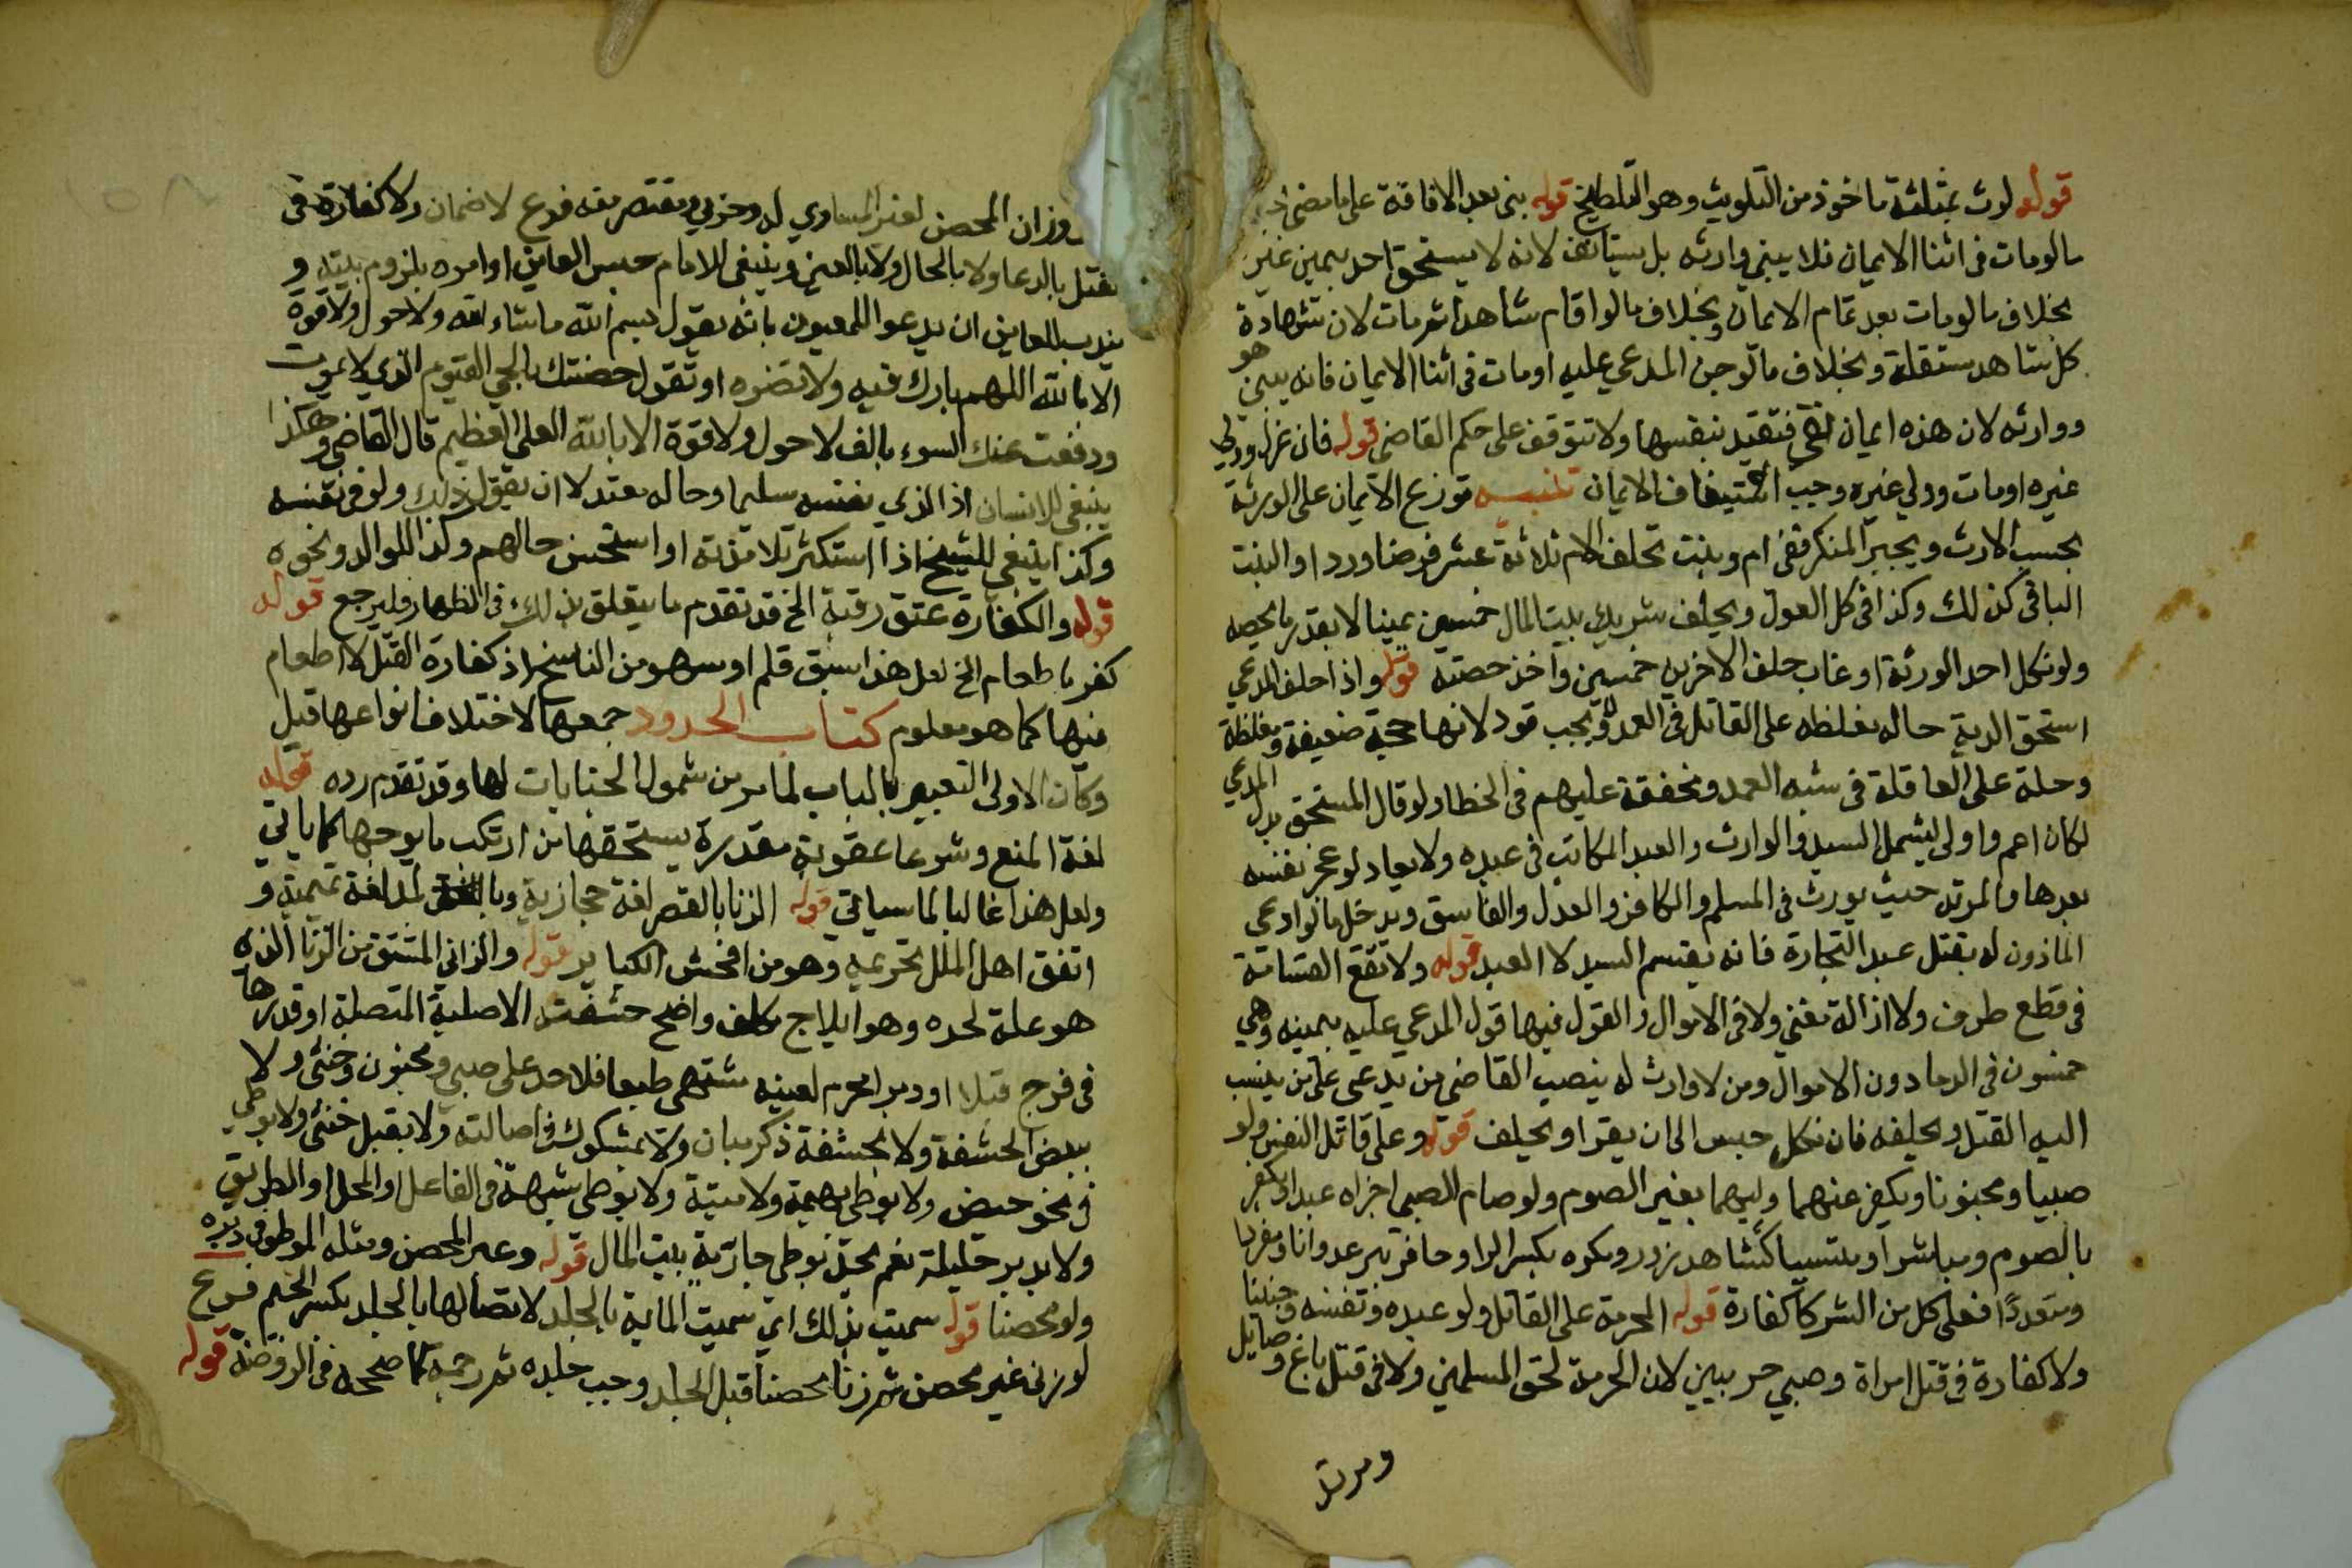 قوله لوث بمثلثة ماخوذ من التلويث وهو التلطيخ قوله بنى بعد الافاقة على ما مضى
مالومات في اثنا الايمان فلا يبني وارثه بل يستانف لانه لا يستحق احد بيمين غيره
بخلاف مالومات بعد تمام الايمان وبخلاف مالو اقام شاهدا ثم مات لان شهادة
كل شاهد مستقلة وبخلاف مالو جن المدعي عليه اومات في اثنا الايمان فانه يبني هو
ووارثه لان هذه ايمان نفي فتقيد بنفسها ولا تتوقف على حكم القاضي قوله فان عزل وولي
غيره اومات وولي غيره وجب استيناف الايمان تنبيه توزع الايمان على الورثة
بحسب الارث ويجبر المنكر ففي ام وبنت تحلف الام ثلاثة عشر فرضا وردا والبنت
الباقي كذلك وكذا في كل العول ويحلف شريك بيت المال خمسين يمينا لا بقدر ما يخصه
ولو نكل احد الورثة او غاب حلف الاخر خمسين واخذ حصته قوله واذا حلف المدعي
استحق الدية حاله مغلظه على القاتل في العمد ولا يجب قود لانها حجة ضعيفة ومغلظة
وحلة على العاقلة في شبه العمد ومخففة عليهم في الخطا ولو قال المستحق بدل المدعي
لكان اعم واولى ليشمل السيد والوارث والعبد المكاتب في عبده ولا يعاد لو عجز نفسه
بعدها والمرتد حيث يورث في المسلم والكافر والعدل والفاسق ويدخل مالو ادعى
الماذون له بقتل عبد التجارة فانه يقسم السيد لا العبد قوله ولا تقع القسامة
في قطع طرف ولا ازالة معنى ولا في الاموال والقول فيها قول المدعي عليه بيمينه وهي
خمسون في الدما دون الاموال ومن لا وارث له ينصب القاضي من يدعي على من ينسب
اليه القتل ويحلفه فان نكل حبس الى ان يقر او يحلف قوله وعلى قاتل النفس ولو
صبيا ومجنونا ويكفر عنهما وليهما بغير الصوم ولو صام الصبي اجزاه عبدا ويكفر
بالصوم ومباشرا ومتسببا كشاهد زور ومكره بكسر الرا وحافر بير عدوانا ومفردا
ومتعددا فعلى كل من الشركا كفارة قوله المحرمة على القاتل ولو عبده ونفسه وجنينا
ولا كفارة في قتل امراة وصبي حربيين لان الحرمة لحق المسلمين ولا في قتل باغ وصايل
ومرتد
وزان المحصن لغير المساوي له وحربي ومقتص منه فرع لا ضمان ولا كفارة في
بقتل بالدعا ولا بالحال ولا بالعين وينبغي للامام حبس العاين او امره بلزوم بيته و
يندب للعاين ان يدعو للمعيون بانه يقول بسم الله ماشاء الله ولا حول ولا قوة
الا بالله اللهم بارك فيه ولا تضره او تقول حصنتك بالحي القيوم الذي لا يموت
ودفعت عنك السوء بالف لا حول ولا قوة الا بالله العلي العظيم قال القاضي وهكذا
ينبغي للانسان اذا الذي نفسه سليما وحاله معتدلا ان يقول ذلك ولو في نفسه
وكذا ينبغي للشيخ اذا استكثر تلامذته او استحسن حالهم وكذا للوالد ونحوه
قوله والكفارة عتق رقبة الخ قد تقدم ما يتعلق بذلك في الظهار فليرجع قوله
كفر باطعام الخ لعل هذا سبق قلم او سهو من الناسخ اذ كفارة القتل لا اطعام
فيها كما هو معلوم كتاب الحدود جمعها لاختلاف انواعها قيل
وكان الاولى التعبير بالباب لما مر من شمول الجنايات لها وقد تقدم رده قوله
لغة المنع وشرعا عقوبة مقدرة يستحقها من ارتكب ما يوجبها كما ياتي
ولعل هذا غالبا لما سياتي قوله الزنا بالقصر لغة حجازية وبالمد لغة تميمية و
اتفق اهل الملل تحريمه وهو من افحش الكباير قوله والزاني المشتق من الزنا الذي
هو علة لحده وهو ايلاج مكلف واضح حشفته الاصلية المتصلة او قدرها
في فرج قبلا او دبر محرم لعينه مشتهى طبعا فلا حد على صبي ومجنون وخنثى ولا
ببعض الحشفة ولا بحشفة ذكر مبان ولا بمشكوك في اصالته ولا بقبل خنثى ولا بوطي
في نحو حيض ولا بوطي بهيمة ولا ميتة ولا بوطي شبهة في الفاعل او المحل او الطريق
ولا بدبر حليلة نعم يحد بوطي جارية بيت المال قوله وغير المحصن ومثله الموطو في دبره
ولو محصنا قوله سميت بذلك اي سميت الماية بالجلد لاتصالها بالجلد بكسر الجيم فرع
لو زنى غير محصن ثم زنا محصنا قبل الجلد وجب جلده ثم رجمه كما صححه في الروضة قوله